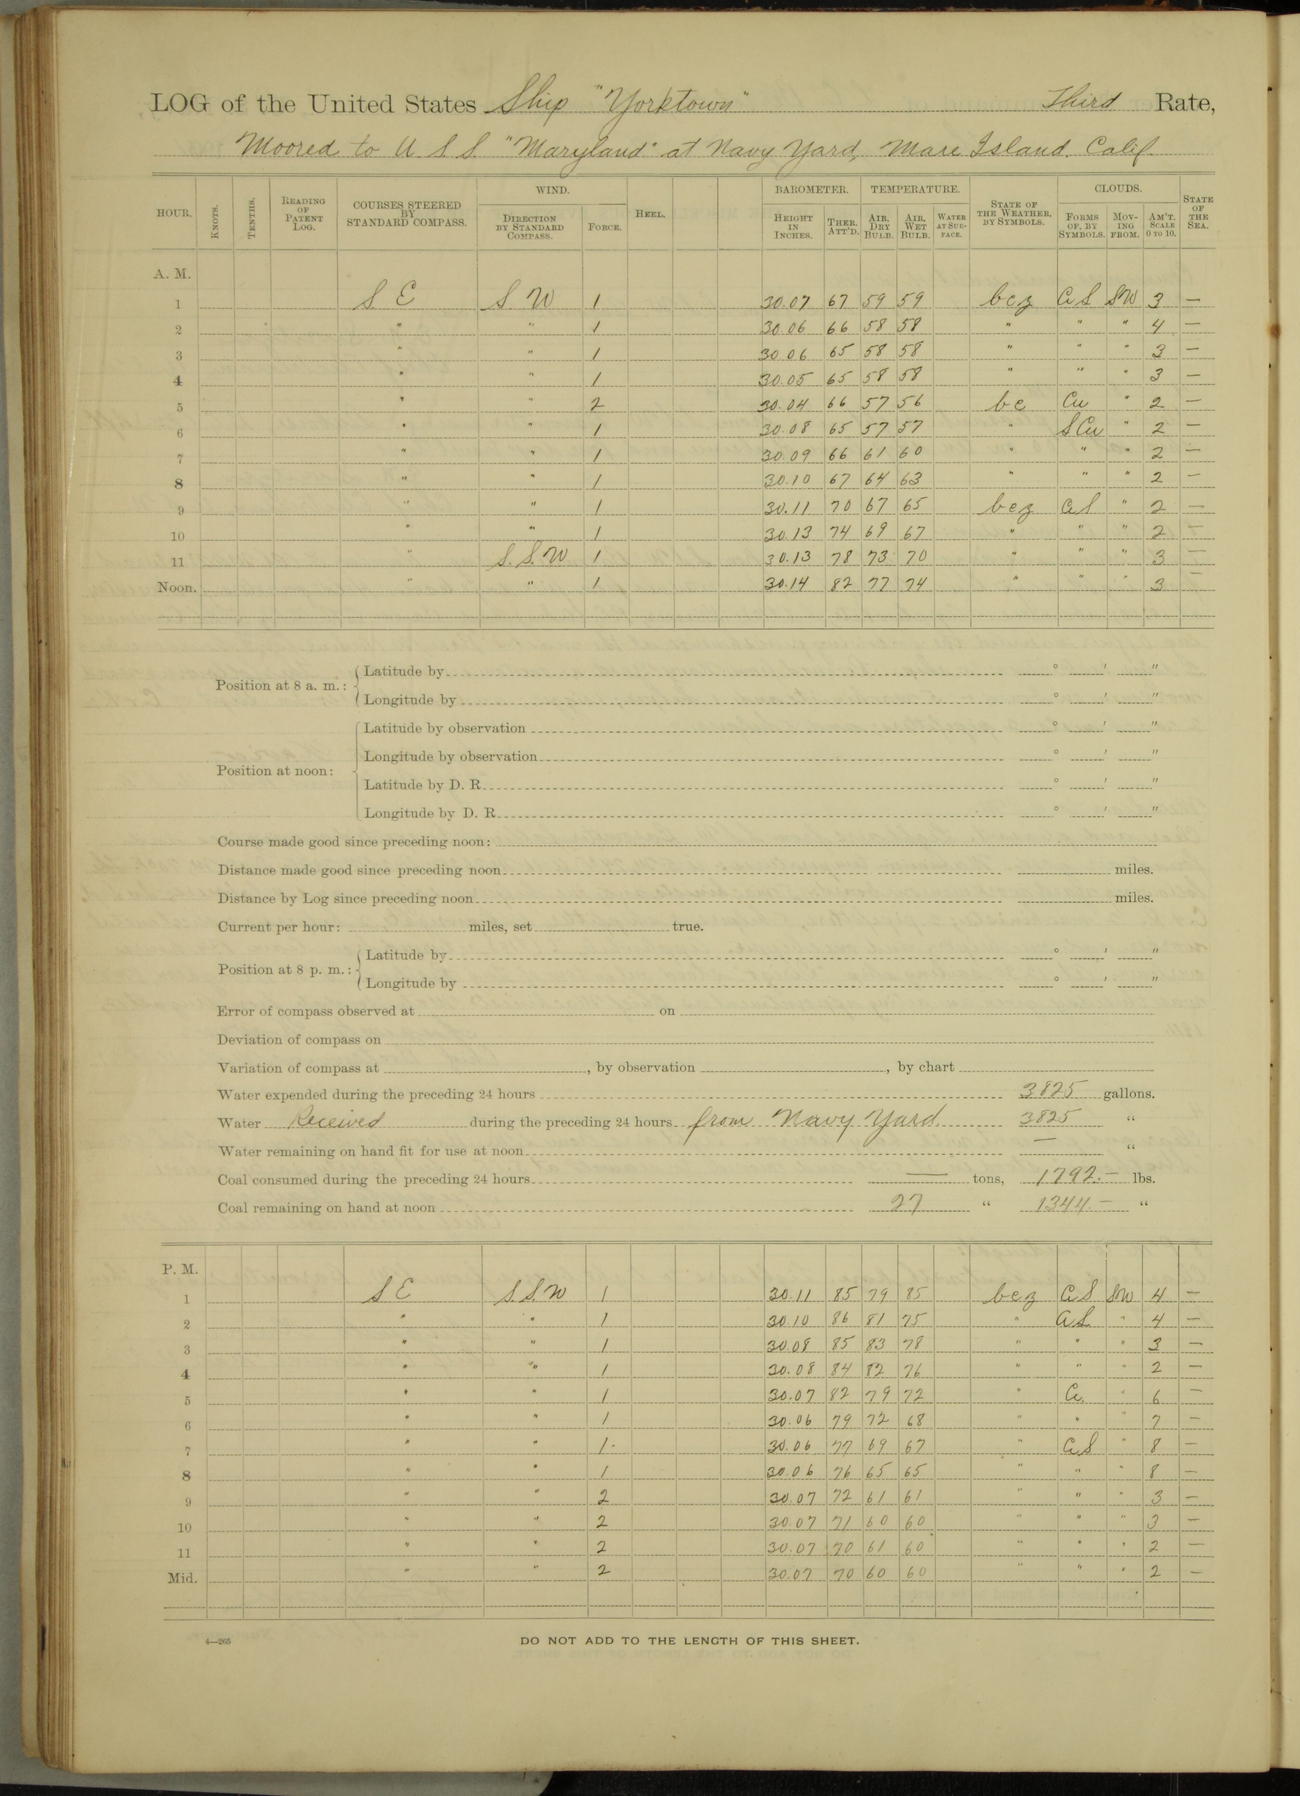 LOG of the United States Ship "Yorktown" Third Rate,
Moored to U S S. "Maryland" at Navy Yard, Mare Island. Calif.
HOUR. KNOTS. TENTHS. READING OF PATENT LOG. COURSES STEERED BY STANDARD COMPASS. WIND. DIRECTION BY STANDARD COMPASS. FORCE. HEEL. BAROMETER. HEIGHT IN INCHES. THER. ATT'D. TEMPERATURE. AIR, DRY BULB. AIR, WET BULB. WATER AT SURFACE. STATE OF THE WEATHER, BY SYMBOLS. CLOUDS. FORMS OF, BY SYMBOLS. MOVING FROM. AM'T. SCALE 0 TO 10. STATE OF THE SEA.
A. M.
1 S E S. W 1 30.07 67 59 59 bcz C S SW 3 —
2 " " 1 30.06 66 58 58 " " " 4 —
3 " " 1 30.06 65 58 58 " " " 3 —
4 " " 1 30.05 65 58 58 " " " 3 —
5 " " 2 30.04 66 57 56 bc Cu " 2 —
6 " " 1 30.08 65 57 57 " S Cu " 2 —
7 " " 1 30.09 66 61 60 " " " 2 —
8 " " 1 30.10 67 64 63 " " " 2 —
9 " " 1 30.11 70 67 65 bcz C S " 2 —
10 " " 1 30.13 74 69 67 " " " 2 —
11 " S.S.W 1 30.13 78 73 70 " " " 3 —
Noon. " " 1 30.14 82 77 74 " " " 3 —
Position at 8 a. m.: Latitude by ° ' "
Longitude by ° ' "
Position at noon: Latitude by observation ° ' "
Longitude by observation ° ' "
Latitude by D. R. ° ' "
Longitude by D. R. ° ' "
Course made good since preceding noon:
Distance made good since preceding noon miles.
Distance by Log since preceding noon miles.
Current per hour: miles, set true.
Position at 8 p. m.: Latitude by ° ' "
Longitude by ° ' "
Error of compass observed at on
Deviation of compass on
Variation of compass at , by observation , by chart
Water expended during the preceding 24 hours 3825 gallons.
Water Received during the preceding 24 hours from Navy Yard 3825 "
Water remaining on hand fit for use at noon — "
Coal consumed during the preceding 24 hours — tons, 1792.— lbs.
Coal remaining on hand at noon 27 " 1344.— "
P. M.
1 S E S.S.W 1 30.11 85 79 85 bcz C S SW 4 —
2 " " 1 30.10 86 81 75 " A S. " 4 —
3 " " 1 30.08 85 83 78 " " " 3 —
4 " " 1 30.08 84 82 76 " " " 2 —
5 " " 1 30.07 82 79 72 " C. " 6 —
6 " " 1 30.06 79 72 68 " " " 7 —
7 " " 1. 30.06 77 69 67 " C S " 8 —
8 " " 1 30.06 76 65 65 " " " 8 —
9 " " 2 30.07 72 61 61 " " " 3 —
10 " " 2 30.07 71 60 60 " " " 3 —
11 " " 2 30.07 70 61 60 " " " 2 —
Mid. " " 2 30.07 70 60 60 " " " 2 —
4—265 DO NOT ADD TO THE LENGTH OF THIS SHEET.